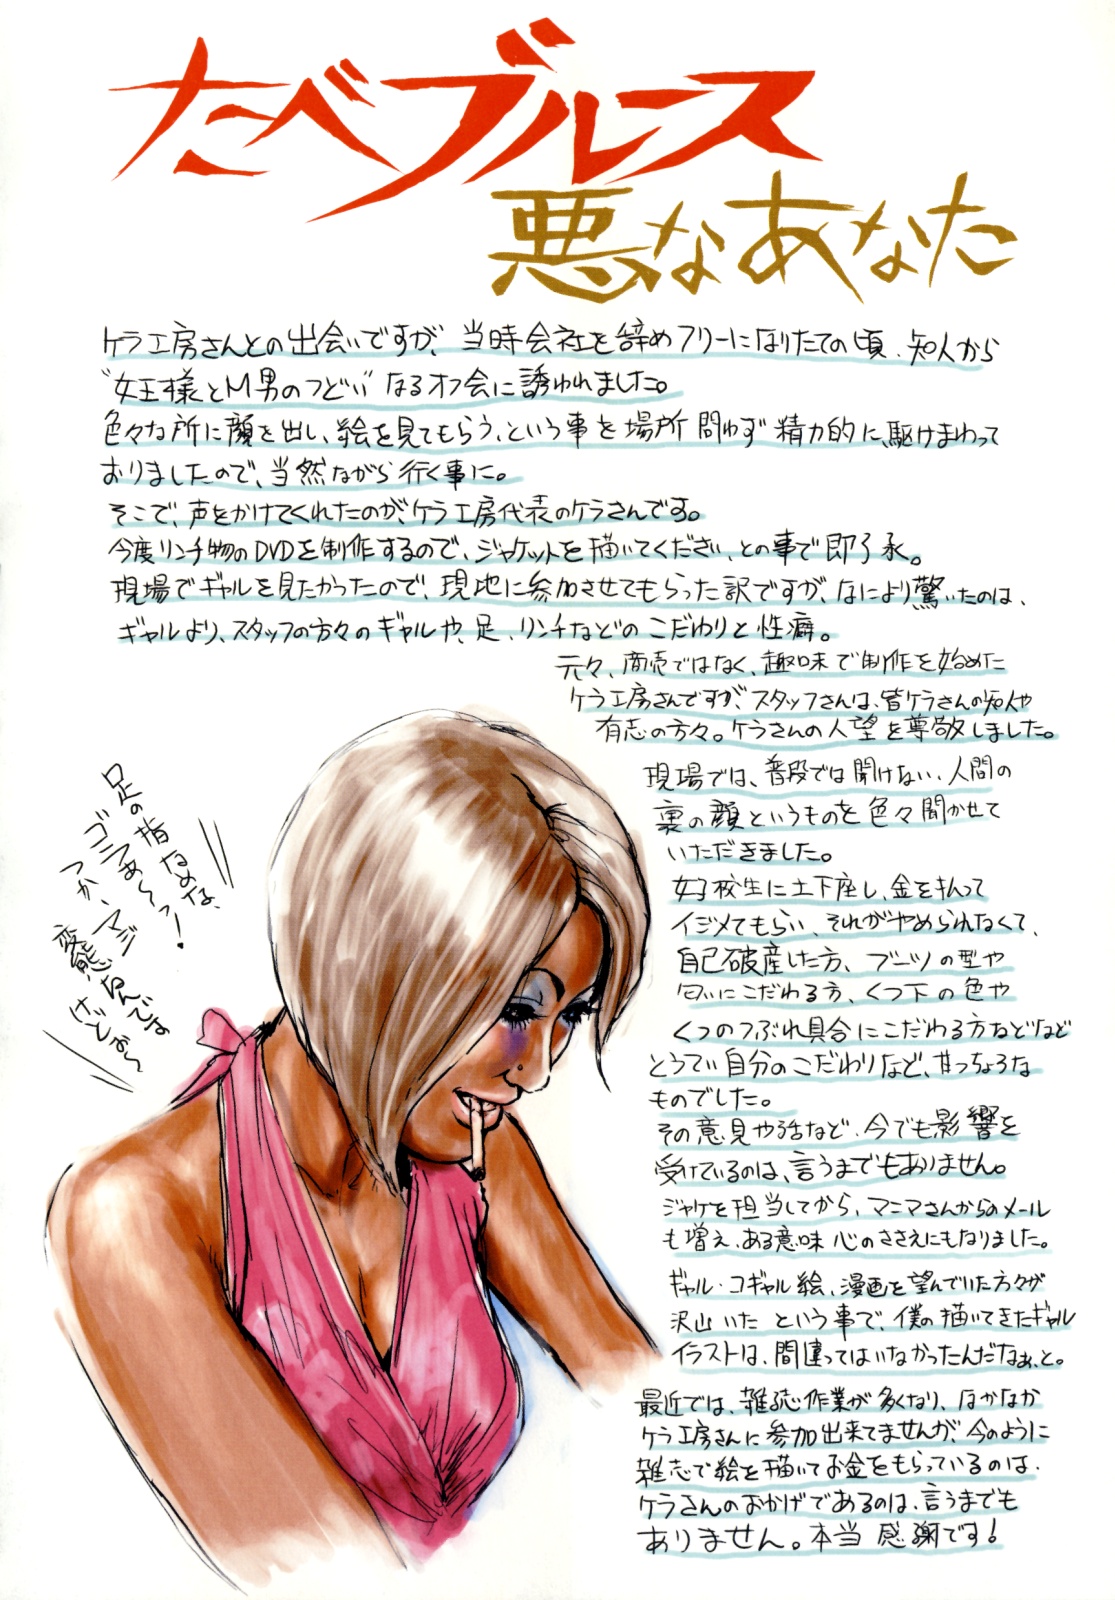 たべブルース
悪なあなた
ケラ工房さんとの出会いですが、当時会社を辞めフリーになりたての頃、知人から
"女王様とM男のつどい"なるオフ会に誘われました。
色々な所に顔を出し、絵を見てもらう、という事を場所問わず精力的に、駆けまわって
おりましたので、当然ながら行く事に。
そこで、声をかけてくれたのが、ケラ工房代表のケラさんです。
今度リンチ物のDVDを制作するので、ジャケットを描いてください、との事で即了承。
現場でギャルを見たかったので、現地に参加させてもらった訳ですが、なにより驚いたのは、
ギャルより、スタッフの方々のギャルや、足、リンチなどのこだわりと性癖。
元々、商売ではなく、趣味で制作を始めた
ケラ工房さんですが、スタッフさんは、皆ケラさんの知人や
有志の方々。ケラさんの人望を尊敬しました。
現場では、普段では聞けない、人間の
裏の顔というものを色々聞かせて
いただきました。
女子校生に土下座し、金を払って
イジメてもらい、それがやめられなくて、
自己破産した方、ブーツの型や
匂いにこだわる方、くつ下の色や
くつのつぶれ具合にこだわる方などなど
とうてい自分のこだわりなど、甘っちょろな
ものでした。
その意見や話など、今でも影響を
受けているのは、言うまでもありません。
ジャケを担当してから、マニマさんからのメール
も増え、ある意味心のささえにもなりました。
ギャル・コギャル絵、漫画を望んでいた方々が
沢山いたという事で、僕の描いてきたギャル
イラストは、間違ってはいなかったんだなぁ、と。
最近では、雑誌作業が多くなり、なかなか
ケラ工房さんに参加出来てませんが、今のように
雑志で絵を描いてお金をもらっているのは、
ケラさんのおかげであるのは、言うまでも
ありません。本当感謝です!
足の指なめな、
ゴラァあ〜っ!
つか、マジ
変態なんですけど